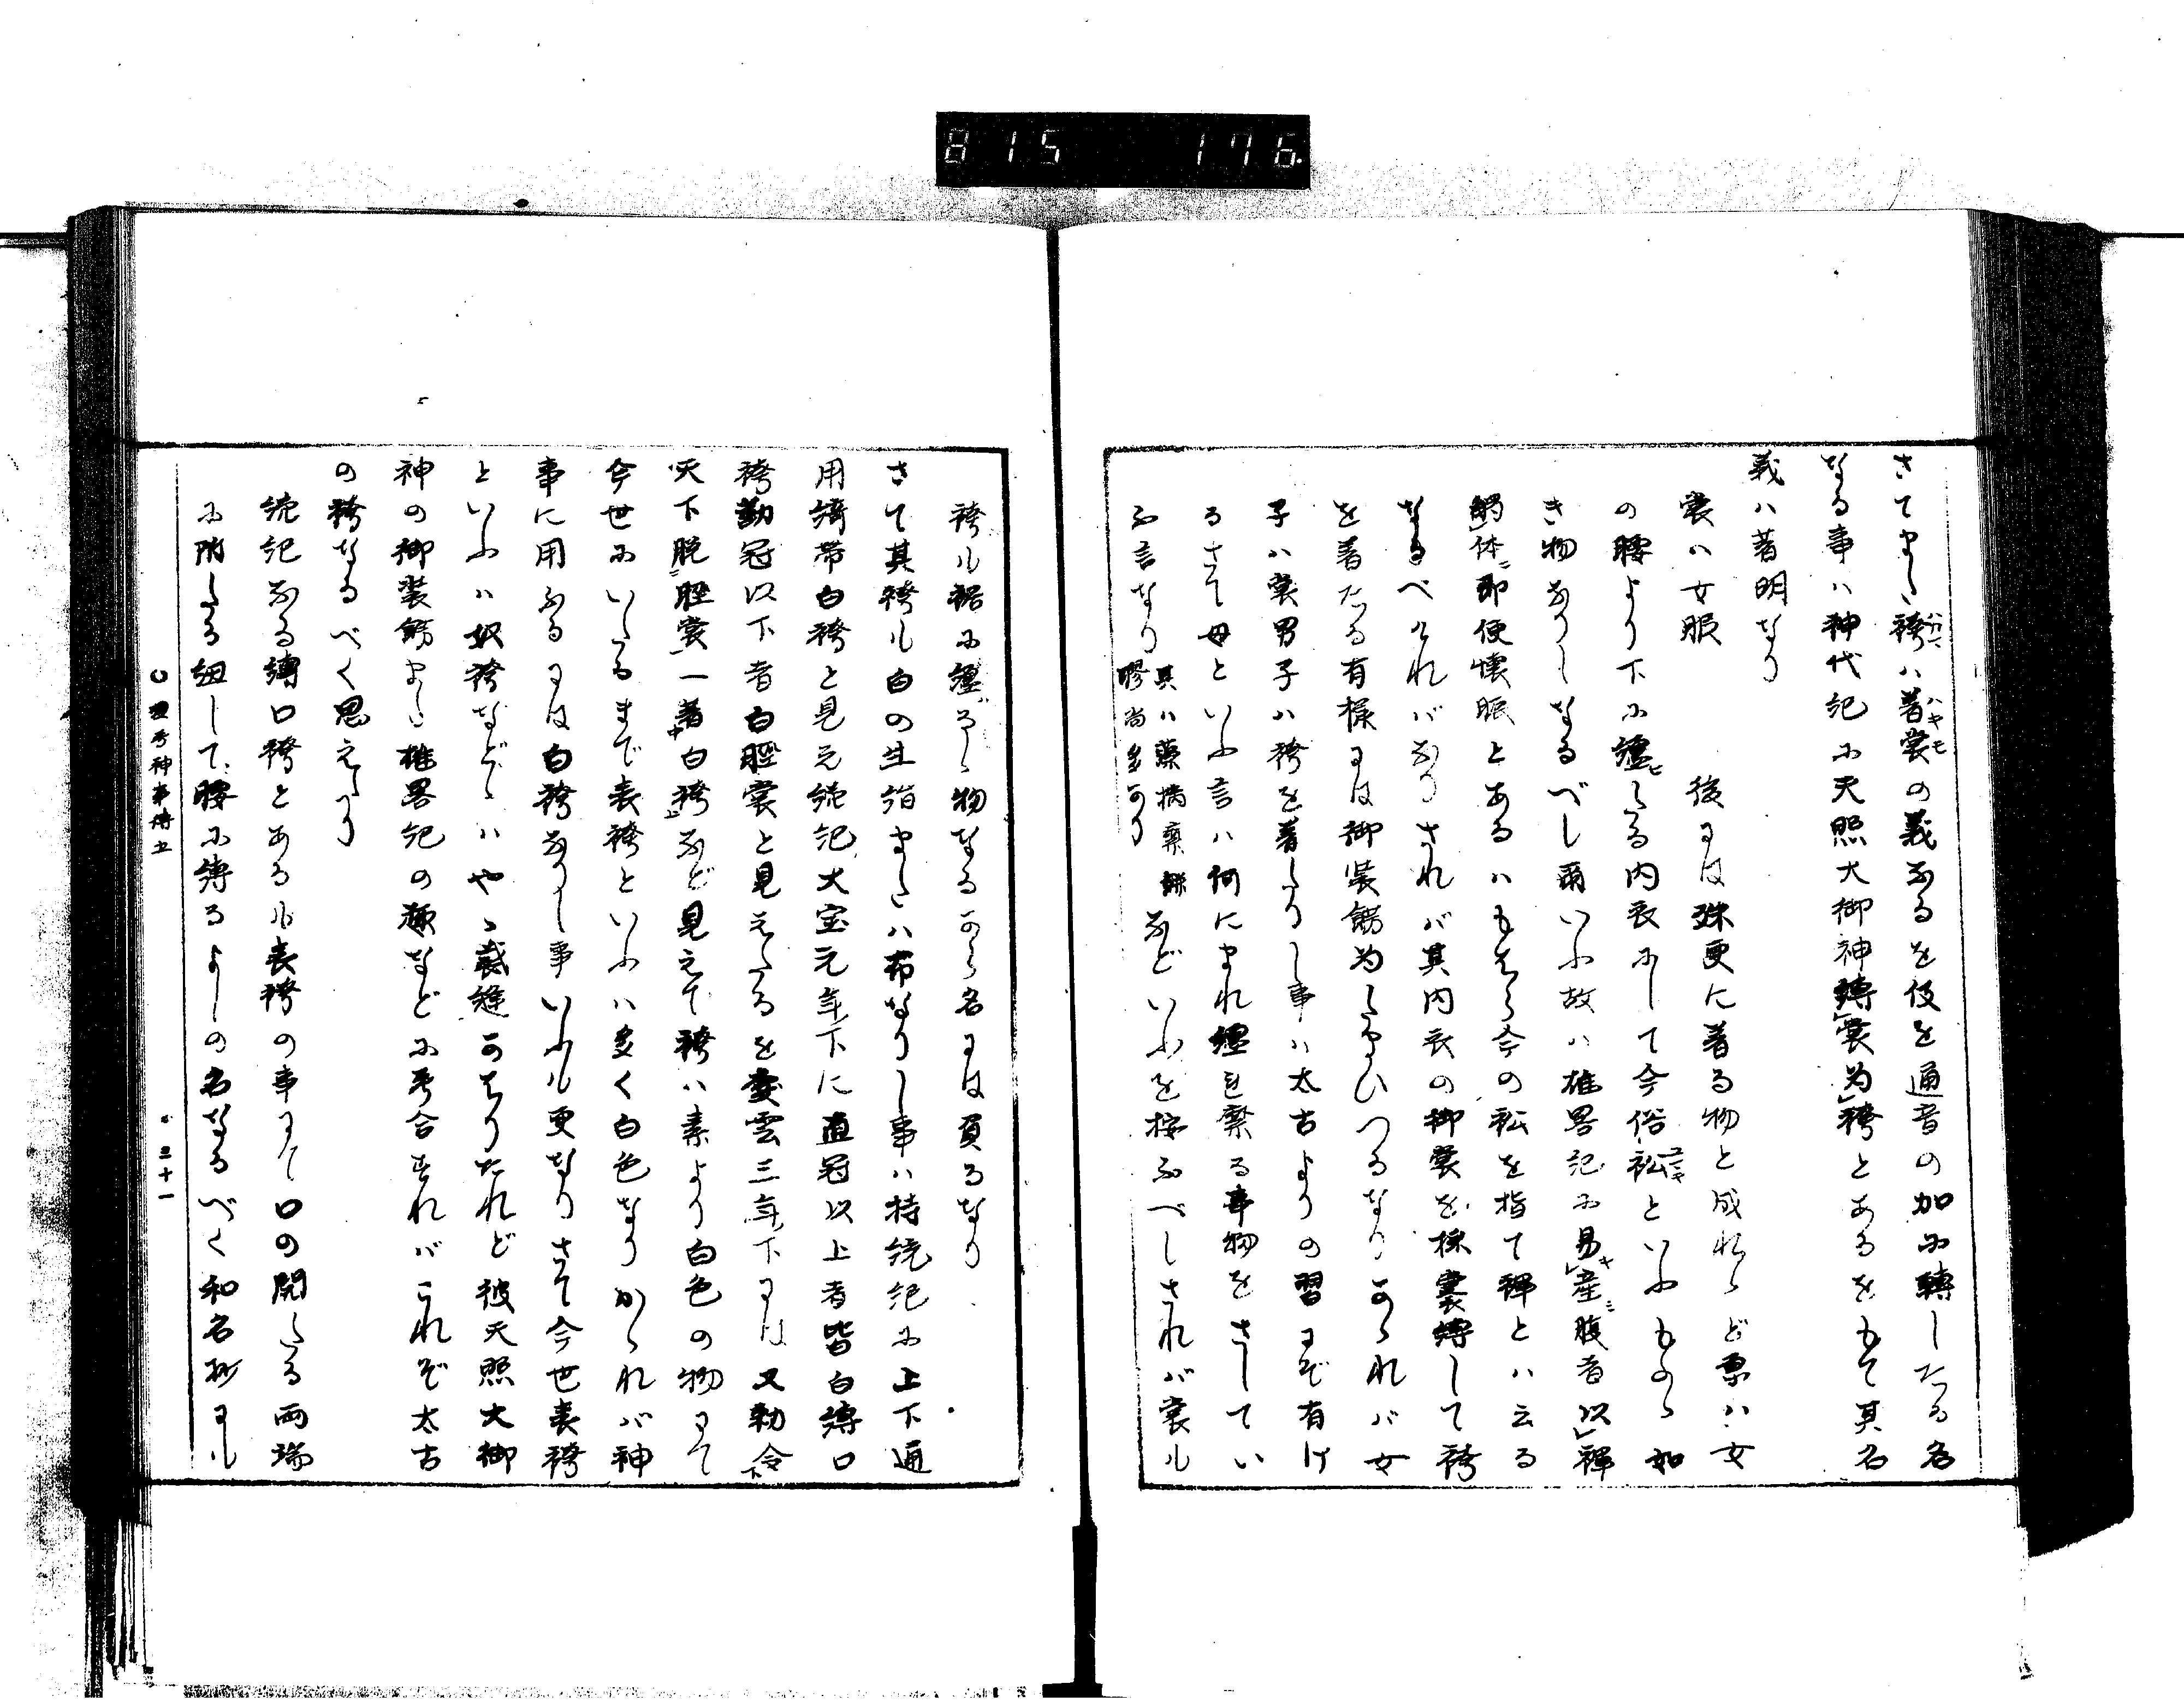 815 176
さてまた袴ハ著裳の義なるを伎を通音の加に轉したる名
なる事ハ神代紀に天照大御神縛裳為袴とあるをもて其名
義ハ著明なり
裳ハ女服 後には殊更に著る物と成れゝど原ハ女
の腰より下に纏ヒたる内衣にして今俗裩といふものゝ如
き物なりしなるべし爾いふ故ハ雄畧記に易産腹者以褌
觸体即便懐脤とあるハもはら今の裩を指て褌とハ云る
なるべけれバなりされバ其内衣の御裳を採褰縛して袴
を著たる有樣には御装餝為したまひつるなりかゝれバ女
子ハ裳男子ハ袴を著たりし事ハ太古よりの習にぞ有け
るさて母といふ言ハ何にまれ纏ヒ繋る事物をさしてい
ふ言なり 其ハ藻 黐 餅 膠尚多かり などいふを按ふべしされバ裳も
袴も裾に纏ふ物なるから名には負るなり
さて其袴も白の生絹または布なりし事ハ持統紀に上下通
用綺帯白袴と見え続紀大宝元年下に直冠以上者皆白縛口
袴勤冠以下者白脛裳と見えたるを慶雲三年下には又勅令
天下脱脛裳一著白袴など見えて袴ハ素より白色の物にて
今世にいたるまで表袴といふハ多く白色なりかゝれバ神
事に用ふるには白袴なりし事いふも更なりさて今世表袴
といふハ奴袴などゝハやゝ裁縫かはりたれど彼天照大御
神の御装餝また雄畧記の趣などに考合すれバこれぞ太古
の袴なるべく思えたり
続紀なる縛口袴とあるも表袴の事にて口の開たる両端
に附たる紐して腰に縛るよしの名なるべく和名抄にも
三十一